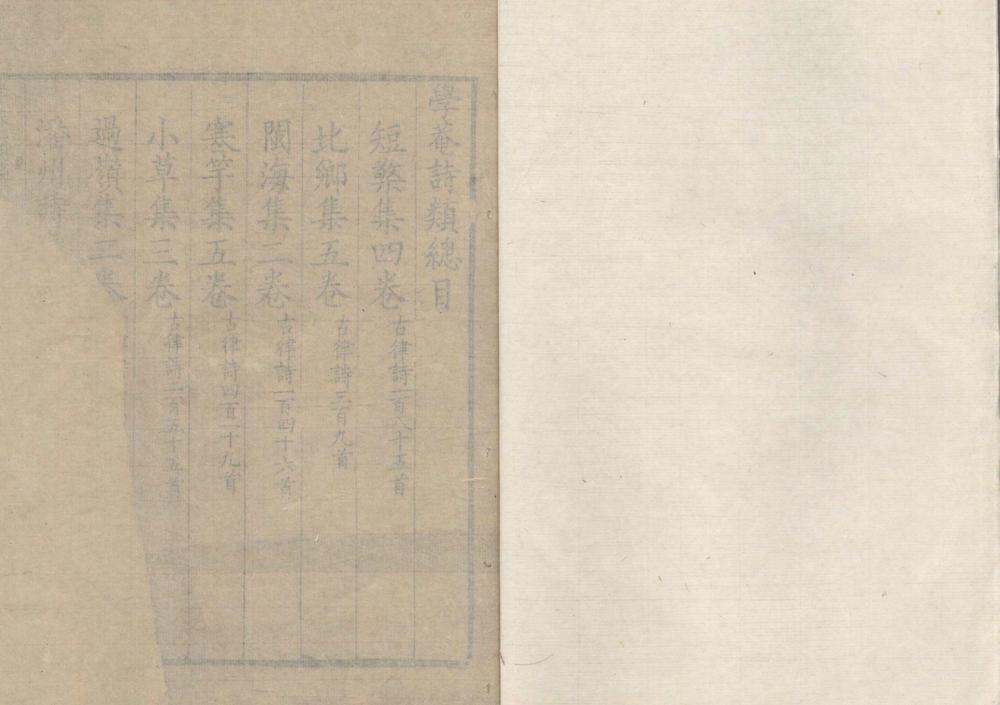 學菴詩類總目
短檠集四卷 古律詩一百八十五首
北鄉集五卷 古律詩三百九首
閩海集二卷 古律詩一百四十六首
寒竽集五卷 古律詩四百一十九首
小草集三卷 古律詩二百五十五首
過嶺集二卷
潘州詩